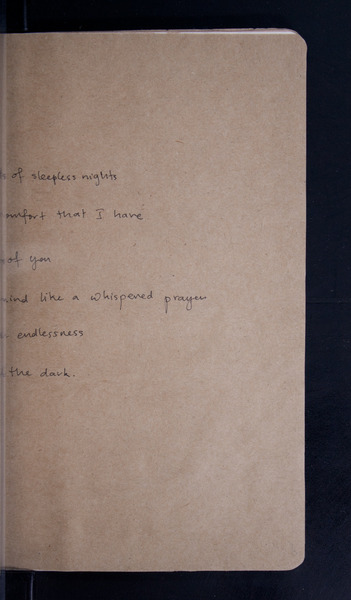 of sleepless nights
that I have
of you
like a whispered prayer
endlessness
the dark.